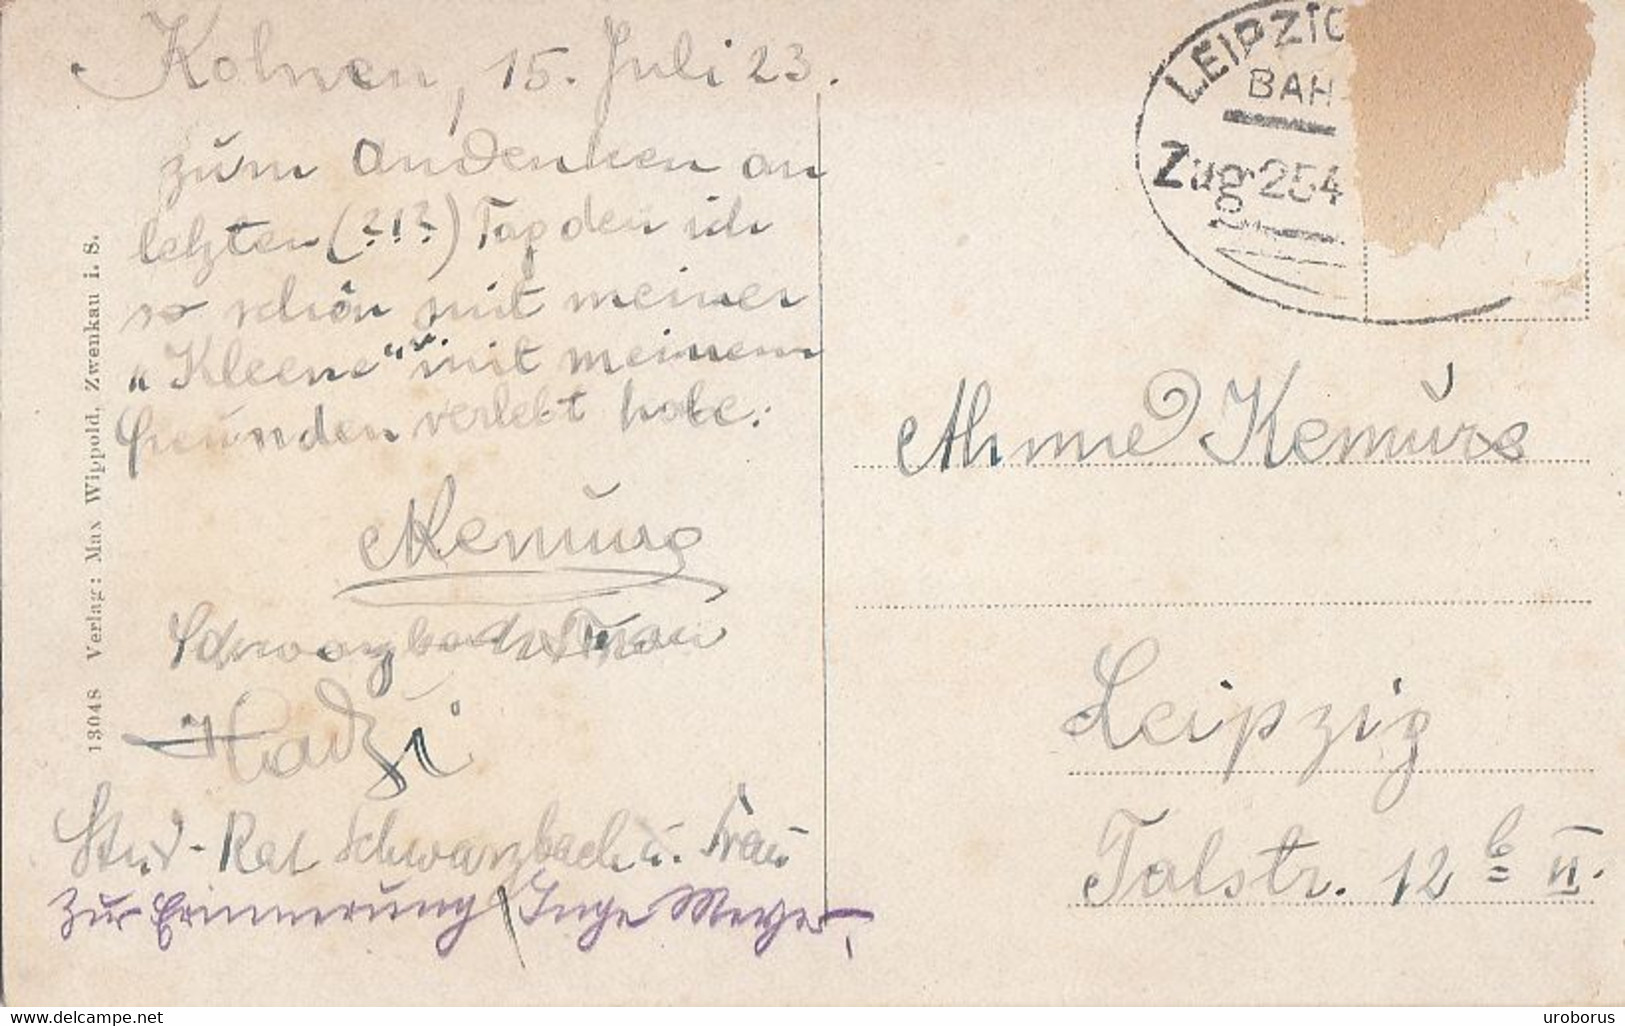 Kolmen, 15. Juli 23.
zum Andenken an
letzten (?!?) Tag den ich
so schön mit meiner
„Kleene“ mit meinem
Freunden verlebt habe.
Schwarzbach u Frau
Hadzi
Stud-Rat Schwarzbach u. Frau
Zur Erinnerung Inge Meyer
13048 Verlag: Max Wippold, Zwenkau i. S.
LEIPZIG
BAH
Zug 254
Leipzig
Talstr. 12 b II.
www.delcampe.net
uroborus